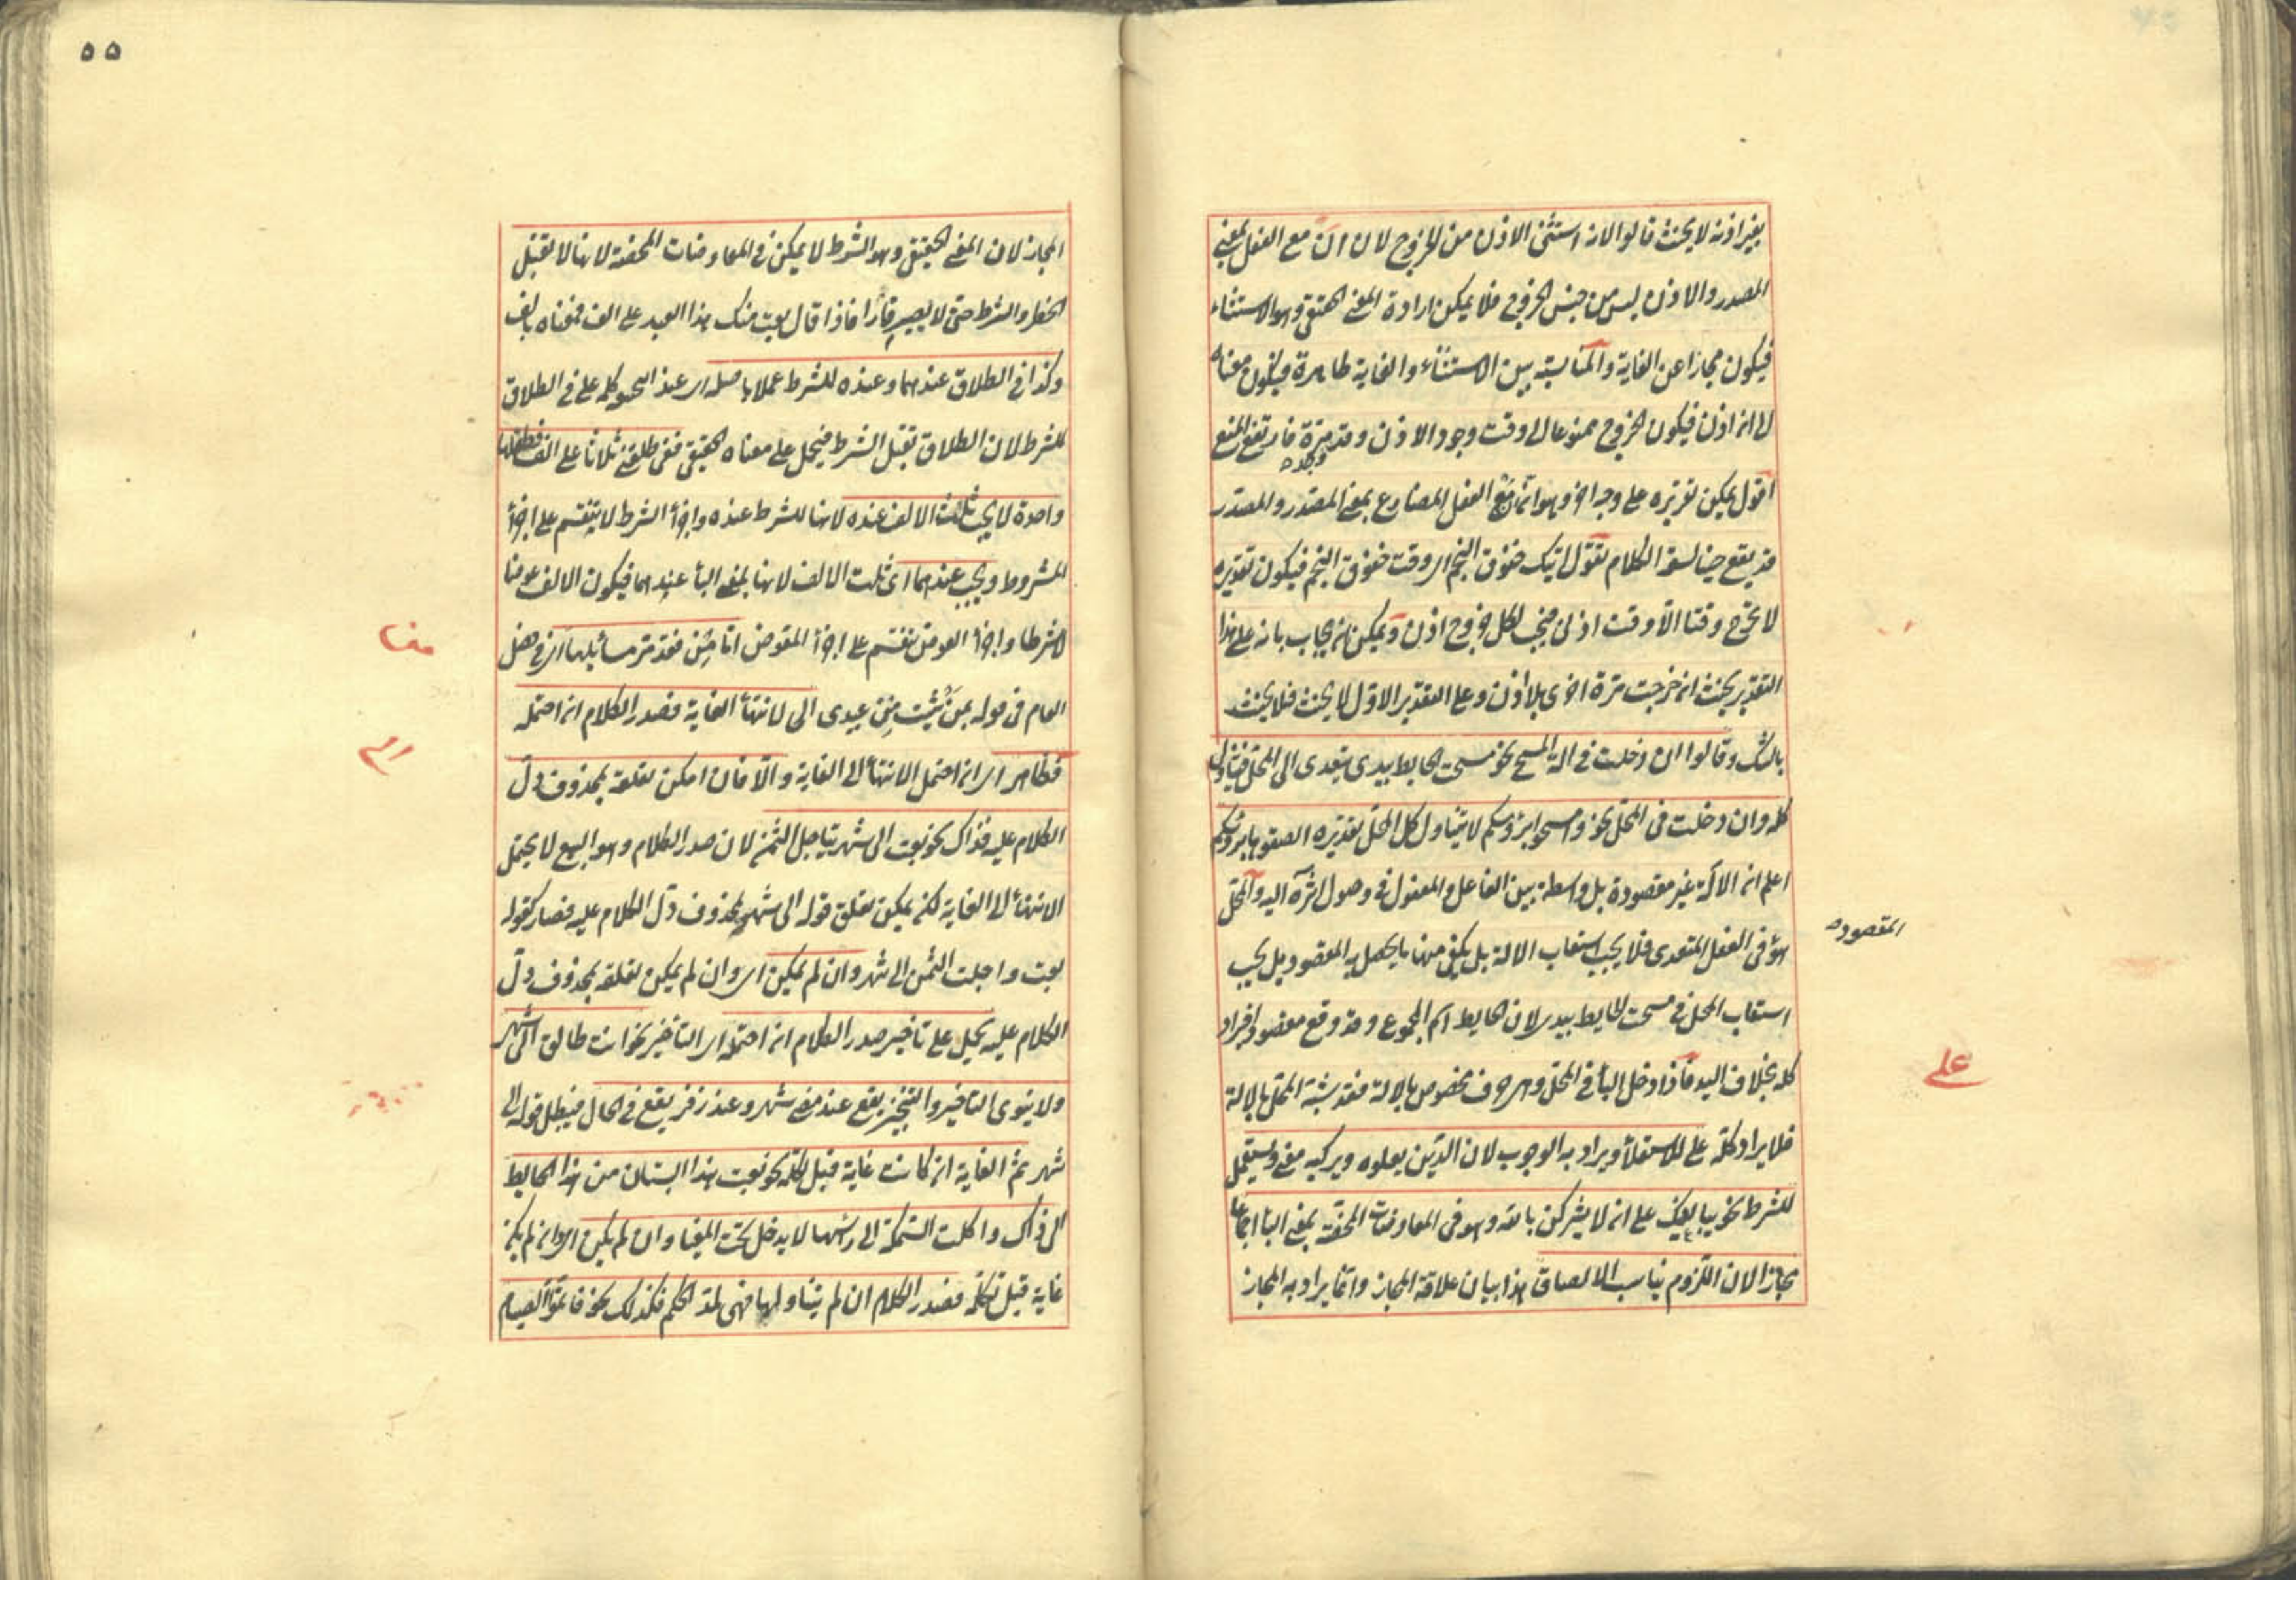 بغير اذنه لا يحنث قالوا لانه استثنى الاذن من الخروج لان ان مع الفعل بمعنى
المصدر والاذن ليس من جنس الخروج فلا يمكن ارادة المعنى الحقيقى وهو الاستثناء
فيكون مجازا عن الغاية والمناسبة بين الاستثناء والغاية ظاهرة فيكون معناه
الى ان اذن فيكون الخروج ممنوعا الى وقت وجود الاذن وقد وجد مرة فارتفع المنع
اقول يمكن تقريره على وجه اخر وهو ان مع الفعل المضارع بمعنى المصدر والمصدر
قد يقع حينا لسعة الكلام تقول اتيك خفوق النجم اى وقت خفوق النجم فيكون تقديره
لا تخرج وقتا الا وقت اذنى فيجب لكل خروج اذن ويمكن ان يجاب بانه على هذا
التقدير يحنث ان خرجت مرة اخرى بلا اذن وعلى التقدير الاول لا يحنث فلا يحنث
بالشك وقالوا ان دخلت فى الة المسح نحو مسحت الحايط بيدى يتعدى الى المحل فيتناول
كله وان دخلت فى المحل نحو وامسحوا برؤسكم لا يتناول كل المحل تقديره الصقوها برؤسكم
اعلم ان الآلة غير مقصودة بل واسطة بين الفاعل والمفعول فى وصول اثره اليه والمحل
هو فى الفعل المتعدى فلا يجب استيعاب الالة بل يكفى منها ما يحصل به المقصود بل يجب
المقصود
استيعاب المحل فى مسحت الحايط بيدى لان الحايط اسم المجموع وقد وقع مقصودا فيراد
كله بخلاف اليد فاذا دخل الباء فى المحل وهى حرف مخصوص بالالة فقد شبه المحل بالالة
على
فلا يراد كله على للاستعلاء ويراد به الوجوب لان الدين يعلوه ويركبه معنى ويستعمل
للشرط نحو يبايعنك على ان لا يشركن بالله وهو فى المعاوضات المحضة بمعنى الباء اجماعا
مجازا لان اللزوم يناسب الالصاق هذا بيان علاقة المجاز وانما يراد به المجاز
٥٥
المجاز لان المعنى الحقيقى وهو الشرط لا يمكن فى المعاوضات المحضة لانها لا تقبل
الخطر والشرط حتى لا يصير قمارا فاذا قال بعت منك هذا العبد على الف فمعناه بالف
وكذا فى الطلاق عندهما وعنده للشرط عملا باصله اى عند ابى ح كلمة على فى الطلاق
للشرط لان الطلاق تقبل الشرط فيحمل على معناه الحقيقى ففى طلقنى ثلاثا على الف فطلقها
واحدة لا يجب ثلث الالف عنده لانها للشرط عنده واجزاء الشرط لا ينقسم على اجزاء
المشروط ويجب عندهما اى ثلث الالف لانها بمعنى الباء عندهما فيكون الالف عوضا
لا شرطا واجزاء العوض تنقسم على اجزاء المعوض اما من فقد مر مسائلها اى فى فصل
العام فى قوله من شئت من عبيدى الى لانتهاء الغاية فصدر الكلام ان احتمله
فظاهر اى ان احتمل الانتهاء الى الغاية والا فان امكن تعلقه بمحذوف دل
الكلام عليه فذاك نحو بعت الى شهر يتاجل الثمن لان صدر الكلام وهو البيع لا يحتمل
الانتهاء الى الغاية لكن يمكن تعلق قوله الى شهر بمحذوف دل الكلام عليه فصار كقوله
بعت واجلت الثمن الى شهر وان لم يمكن اى وان لم يمكن تعلقه بمحذوف دل
الكلام عليه يحمل على تاخير صدر الكلام ان احتمله اى التاخير نحو انت طالق الى شهر
ولا ينوى التاخير والتنجيز يقع عند مضى شهر وعند زفر يقع فى الحال فيبطل قوله الى
شهر ثم الغاية ان كانت غاية قبل تكلمه نحو بعت هذا البستان من هذا الحايط
الى ذاك واكلت السمكة الى راسها لا يدخل تحت المغيا وان لم يكن اى وان لم يكن
غاية قبل تكلمه فصدر الكلام ان لم يتناولها فهى لمد الحكم فكذلك نحو فاتموا الصيام